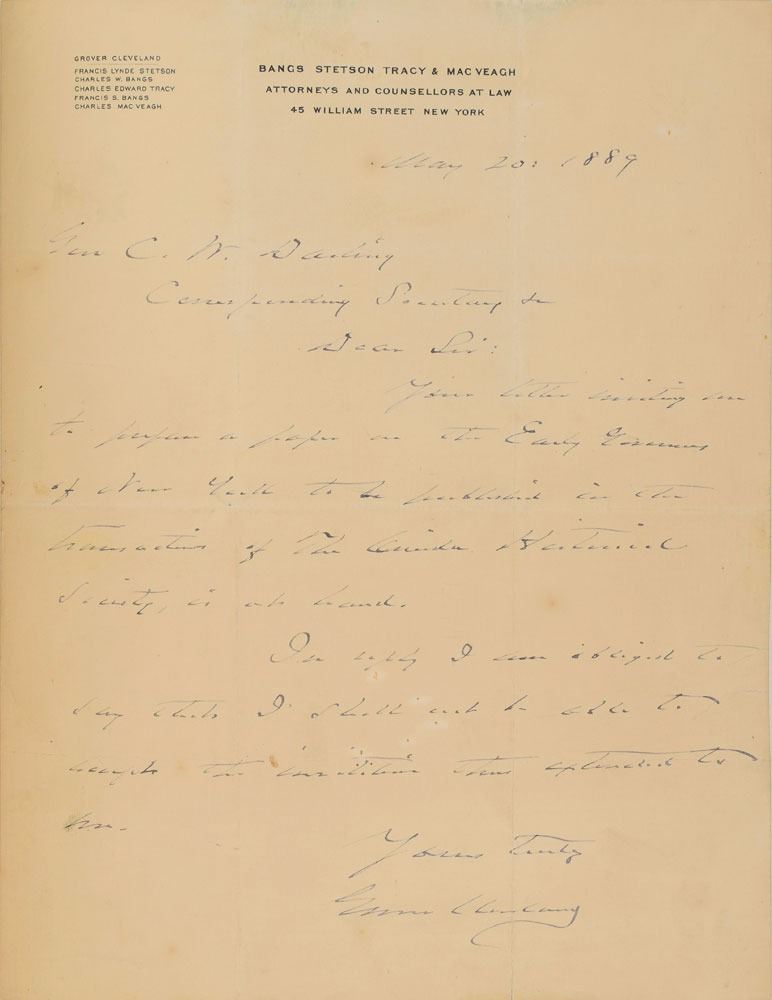 GROVER CLEVELAND
FRANCIS LYNDE STETSON
CHARLES W. BANGS
CHARLES EDWARD TRACY
FRANCIS S. BANGS
CHARLES MAC VEAGH
BANGS STETSON TRACY & MAC VEAGH
ATTORNEYS AND COUNSELLORS AT LAW
45 WILLIAM STREET NEW YORK
May 20: 1889
Gen C. W. Darling
Corresponding Secretary &c
Dear Sir:
Your letter inviting me
to prepare a paper on the Early Governors
of New York to be published in the
transactions of The Oneida Historical
Society, is at hand.
In reply I am obliged to
say that I shall not be able to
accept the invitation thus extended to
me.
Yours truly
Grover Cleveland